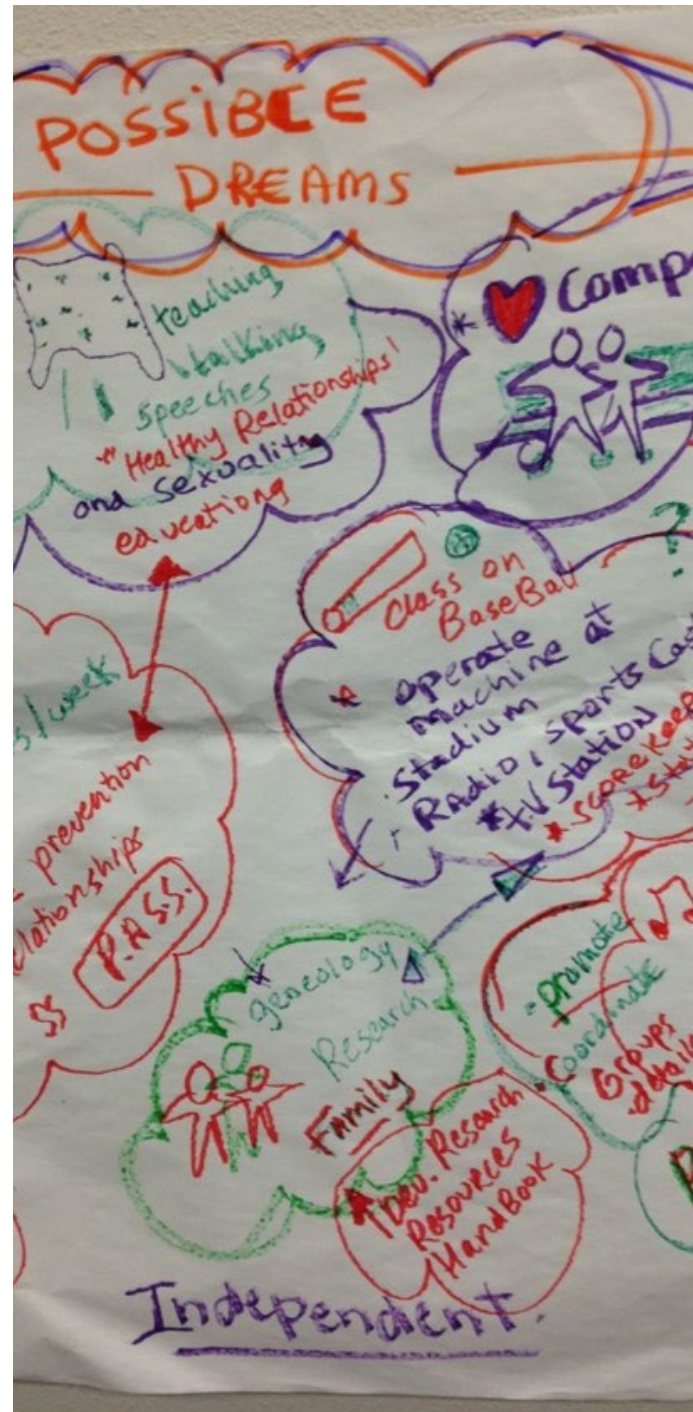 POSSIBLE
DREAMS
teaching
talking
speeches
"Healthy Relationships"
and sexuality
♥ Comp
?
class on
BaseBall
* operate
machine at
Stadium
Radio, sports Cas
* T.V Station
* scorekeep
/week
prevention
lationships
P.A.S.S.
geneology
Research
Family
Dev. Research
Resources
HandBook
-promote
-Coordinate
Groups
-details
Independent.